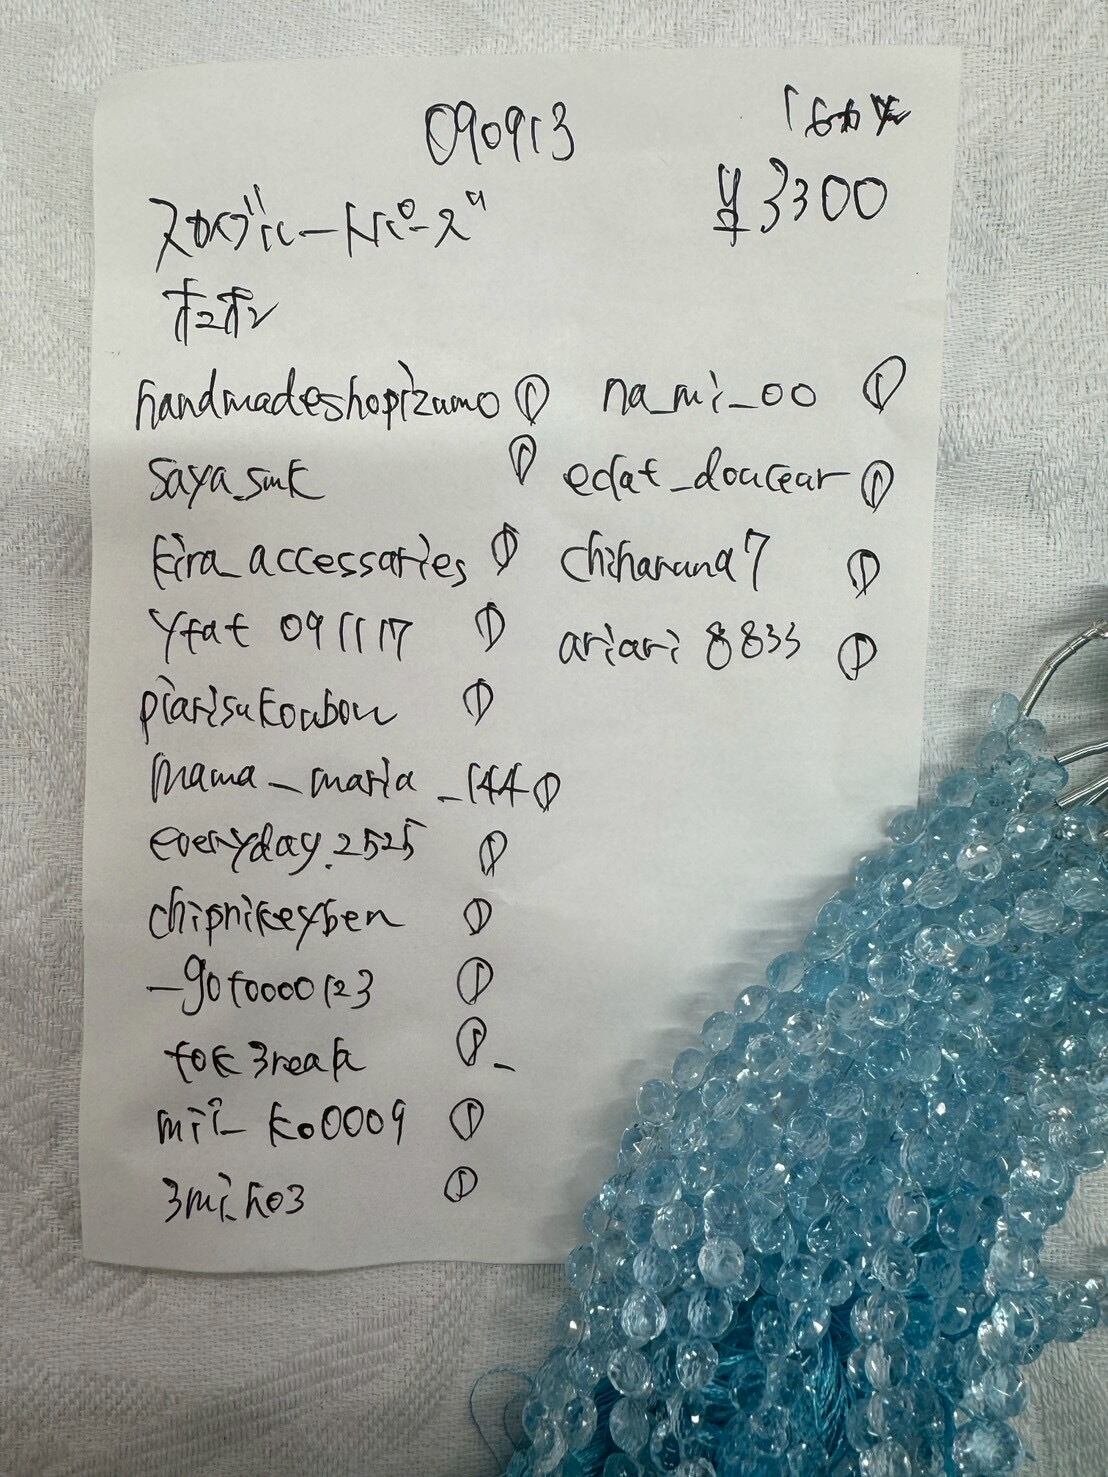 090913
¥3300
スカイブルートパーズ
handmadeshopizumo ①
saya_smk ①
kira_accessaries ①
yfat 091117 ①
piarisukoubou ①
mama_maria_144 ①
everyday.2525 ①
chipnikeyben ①
_goto000123 ①
tok3reak ①
mii_ko0009 ①
3mi_ho3 ①
na_mi_oo ①
eclat_douceur ①
chiharuna7 ①
ariari8833 ①